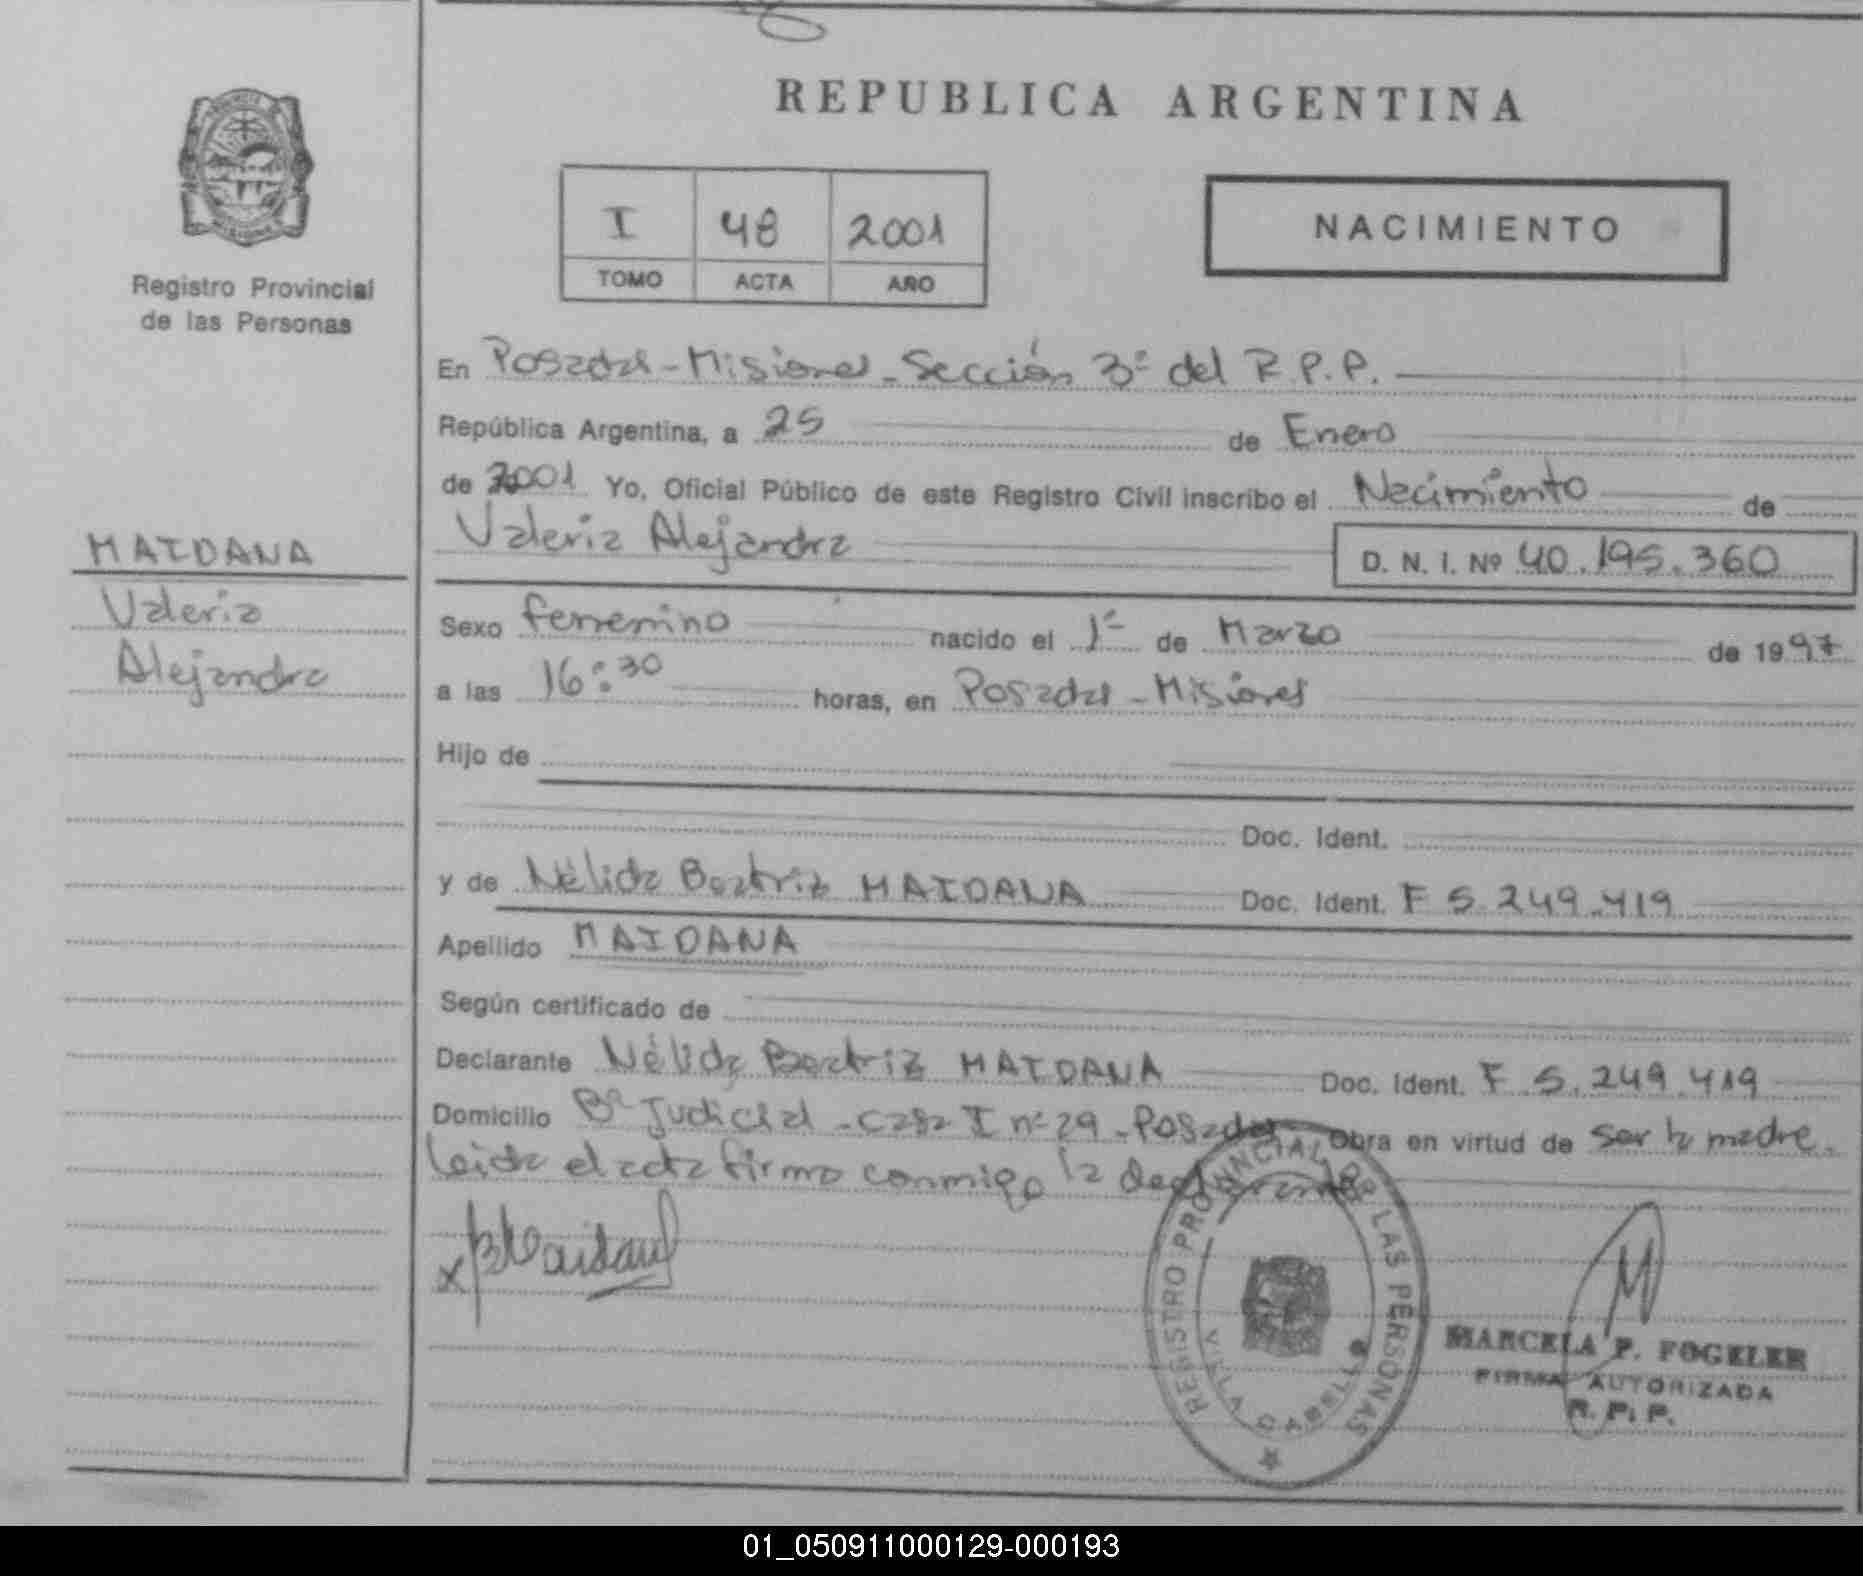 REPUBLICA ARGENTINA
I 48 2001
TOMO ACTA AÑO
NACIMIENTO
Registro Provincial
de las Personas
MAIDANA
Valeria
Alejandra
En Posadas - Misiones - Sección 3º del R.P.P.
República Argentina, a 25 de Enero
de 2001 Yo, Oficial Público de este Registro Civil inscribo el Nacimiento de
Valeria Alejandra
D. N. I. Nº 40.195.360
Sexo femenino nacido el 1º de Marzo de 1997
a las 16:30 horas, en Posadas - Misiones
Hijo de
Doc. Ident.
y de Nélida Beatriz MAIDANA Doc. Ident. F 5.249.419
Apellido MAIDANA
Según certificado de
Declarante Nélida Beatriz MAIDANA Doc. Ident. F 5.249.419
Domicilio Bº Judicial - Casa I nº 29 - Posadas - Obra en virtud de ser la madre.
Leida el acta firma conmigo la declarante
x BMaidana
REGISTRO PROVINCIAL DE LAS PERSONAS
VILLA CABELLO
MARCELA P. FOGELER
FIRMA AUTORIZADA
R. P. P.
01_050911000129-000193